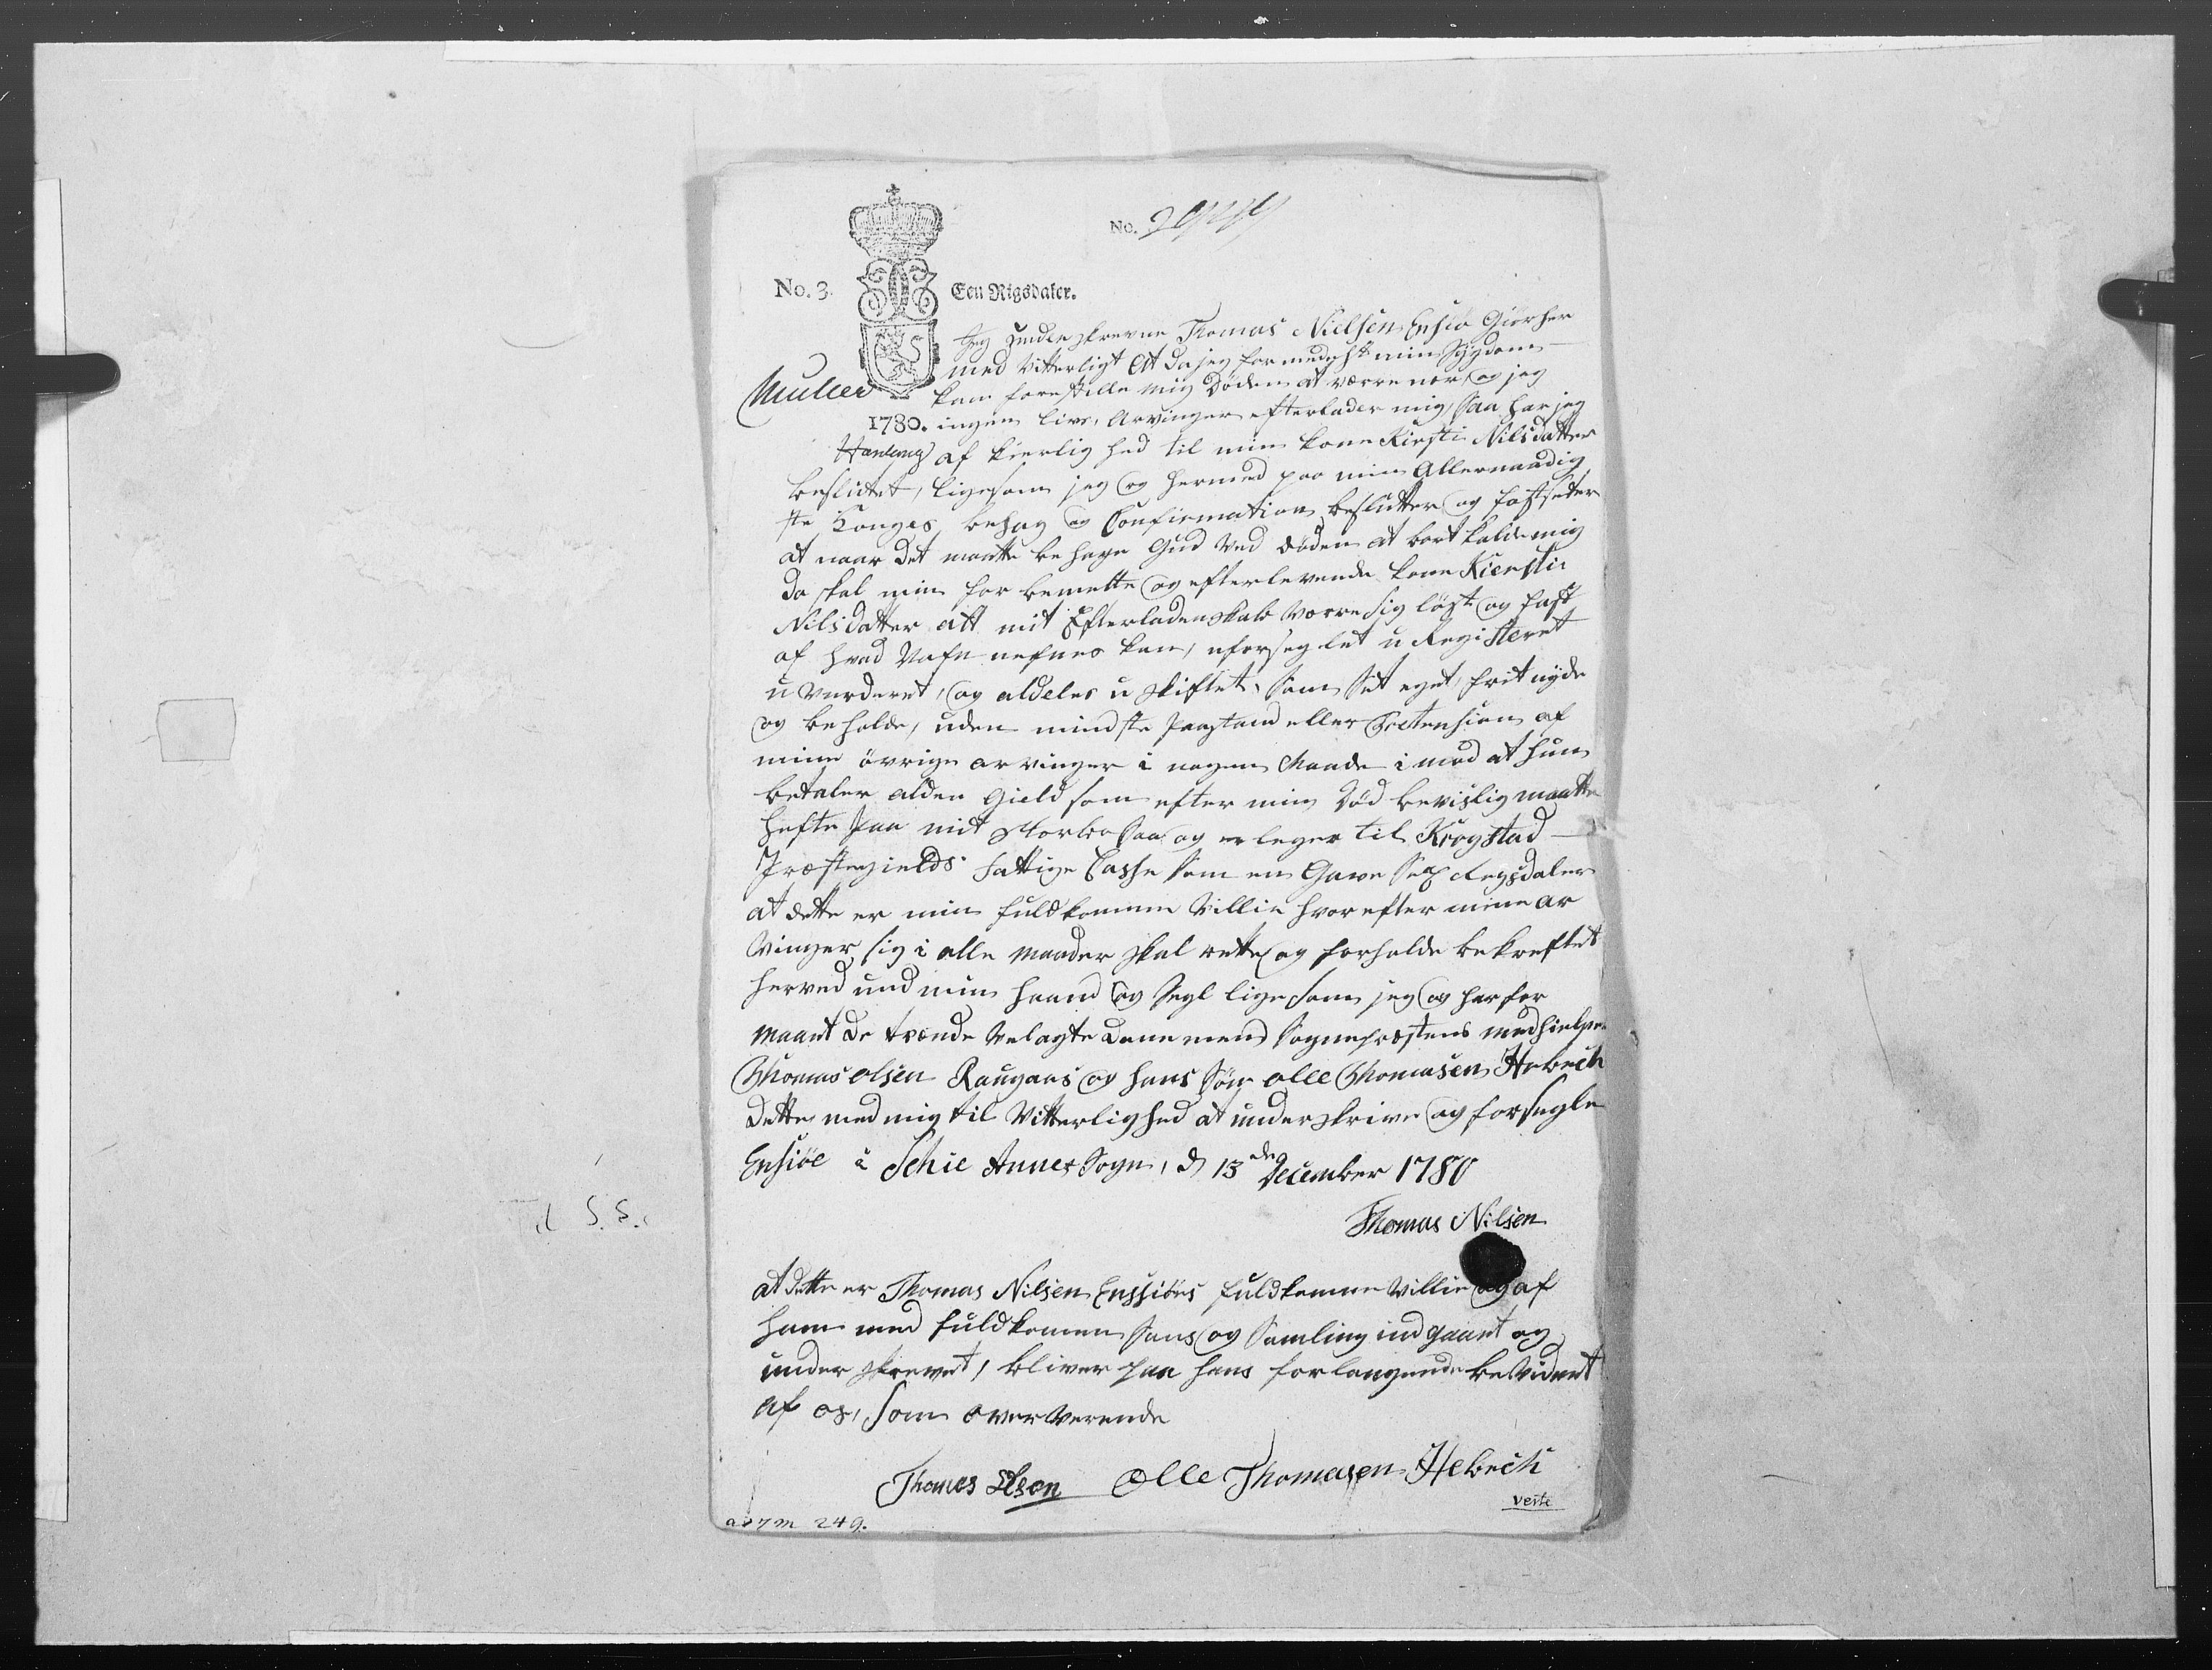 No.
No. 3. Een Rigsdaler.
Jeg underskrevne Thomas Nielsen Ensiö Giör her
med vitterligt Att da jeg formedelst min Sygdom
Müller
kan forestille mig Döden at værre nær, og jeg
1780. ingen livs, Arvinger efterlader mig, Saa har jeg
af kierlighed til min kone Kirsti Nilsdatter
besluttet, ligesom jeg og hermed paa min Allernaadig
ste Konges behag og Confirmation beslutter og fastsetter
at naar det maatte behage Gud ved döden at bort kalde mig
da skal min for bemelte og efterlevende kone Kiersti
Nilsdatter alt mit Efterladenskab værre sig löst og fast
af hvad Nafn nefnes kan, uforseglet u Registeret
u vurderet, og aldeles u skiftet, Som Sit eget, frit nyde
og beholde, uden mindste Paastand eller Prætension af
mine övrige arvinger i nogen Maade imod at hun
betaler alden Gield som efter min Död bevislig maatte
hefte paa mit Sterboe Saa og erleger til Krogstad
Præstegields fattige Casse Som en Gave Sex Regsdaler
at dette er min fuldkomne Villie hvorefter mine ar
vinger sig i alle maader skal rette og forholde bekreftes
herved und min haand og Segl ligesom jeg og har for
maaet de tvende velagte Danemend Sogneprestens medhielper
Thomas olsen Raugaas og hans Sön olle Thomasen Hebech
Dette med mig til Vitterlighed at underskrive og forsegle
Ensiöe i Schie Annex Sogn, d 13de December 1780
Thomas Nilsen
at dette er Thomas Nilsen Enssiöes fuldkomne Villie og af
ham med fuldkommen Sans og Samling indgaaet og
underskrevet, bliver paa hans forlangende bevidnet
af os, som oververende
Thomes Olsen Olle Thomasen Hebech
verte
249.
S. S.